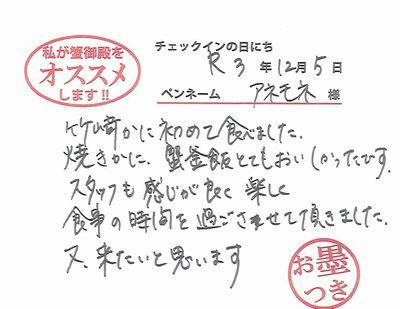 私が蟹御殿を
オススメ
します!!
チェックインの日にち
R3年12月5日
ペンネーム アネモネ 様
竹崎かに初めて食べました。
焼きかに、蟹釜飯とてもおいしかったです。
スタッフも感じが良く楽しく
食事の時間を過ごさせて頂きました。
又、来たいと思います
お墨
つき